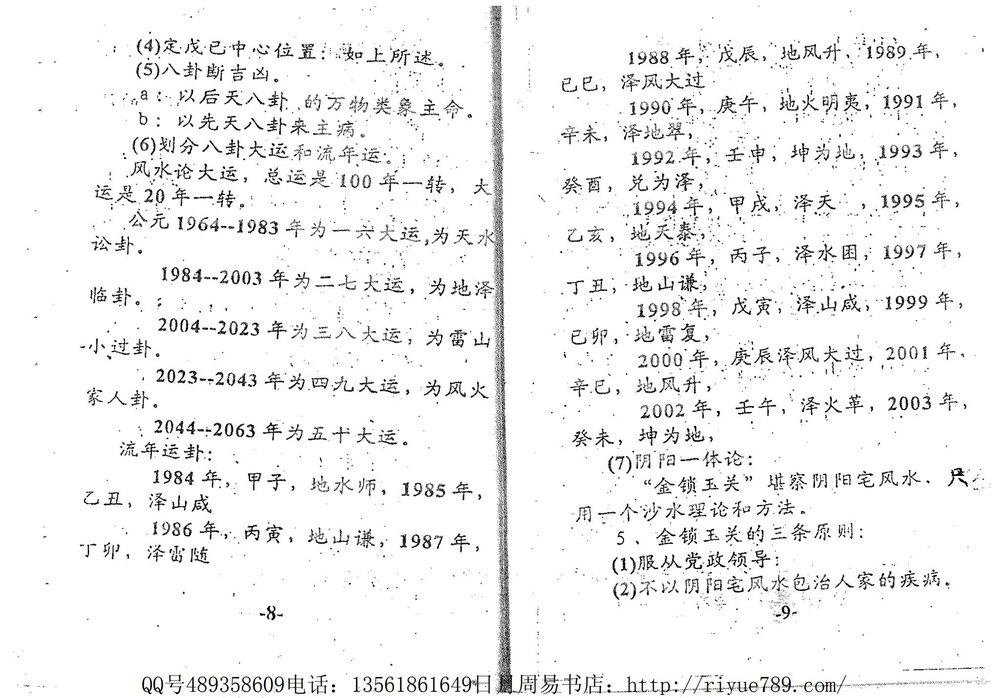 (4)定戊已中心位置：如上所述。
(5)八卦断吉凶。
a：以后天八卦 的万物类象主命。
b：以先天八卦来主病。
(6)划分八卦大运和流年运。
风水论大运，总运是100年一转，大
运是20年一转。
公元1964--1983年为一六大运,为天水
讼卦。
1984--2003年为二七大运，为地泽
临卦。
2004--2023年为三八大运，为雷山
小过卦。
2023--2043年为四九大运，为风火
家人卦。
2044--2063年为五十大运。
流年运卦：
1984年，甲子，地水师，1985年，
乙丑，泽山咸
1986年，丙寅，地山谦，1987年，
丁卯，泽雷随
-8-
1988年，戊辰，地风升，1989年，
已巳，泽风大过
1990年，庚午，地火明夷，1991年，
辛未，泽地翠，
1992年，壬申，坤为地，1993年，
癸酉，兑为泽，
1994年，甲戌，泽天 ，1995年，
乙亥，地天泰，
1996年，丙子，泽水困，1997年，
丁丑，地山谦，
1998年，戊寅，泽山咸，1999年，
已卯，地雷复，
2000年，庚辰泽风大过，2001年，
辛巳，地风升，
2002年，壬午，泽火革，2003年，
癸未，坤为地，
(7)阴阳一体论：
“金锁玉关”堪察阴阳宅风水、只
用一个沙水理论和方法。
5、金锁玉关的三条原则：
(1)服从党政领导；
(2)不以阴阳宅风水包治人家的疾病。
-9-
QQ号489358609电话：13561861649日月周易书店：http://riyue789.com/